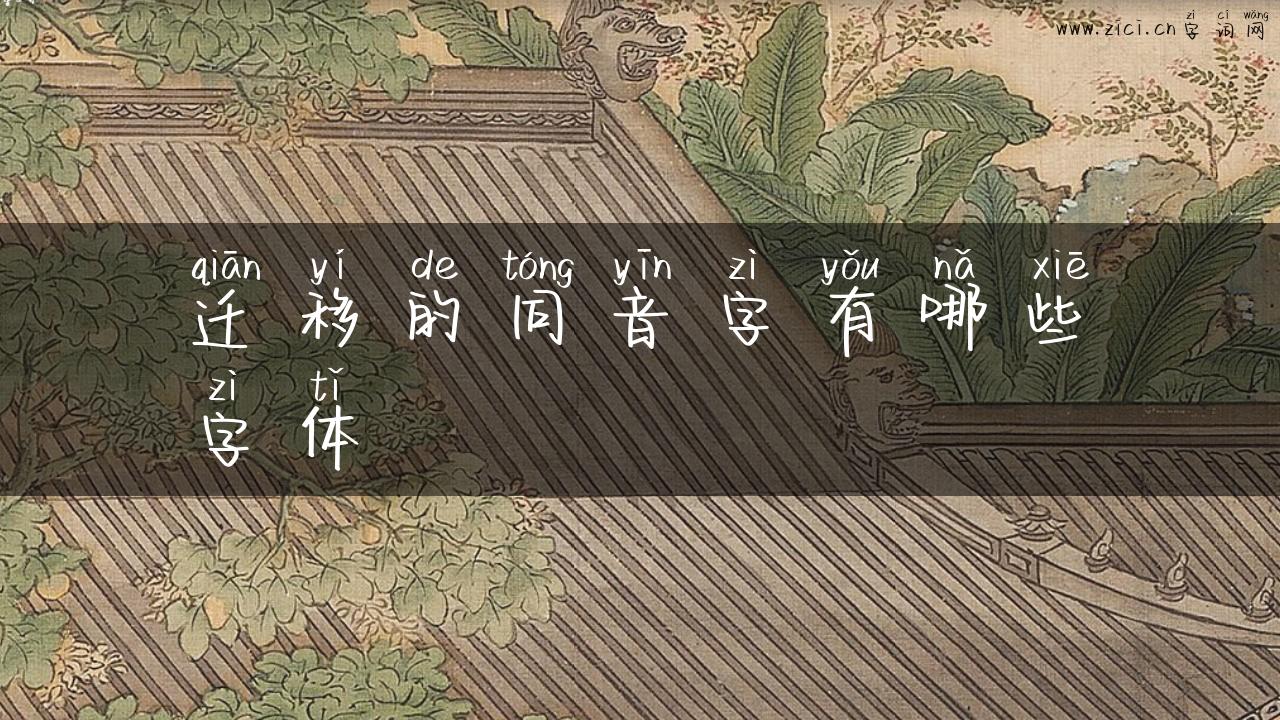 zì cí wǎng
www.zici.cn 字词网
qiān yí de tóng yīn zì yǒu nǎ xiē
迁移的同音字有哪些
zì tǐ
字体